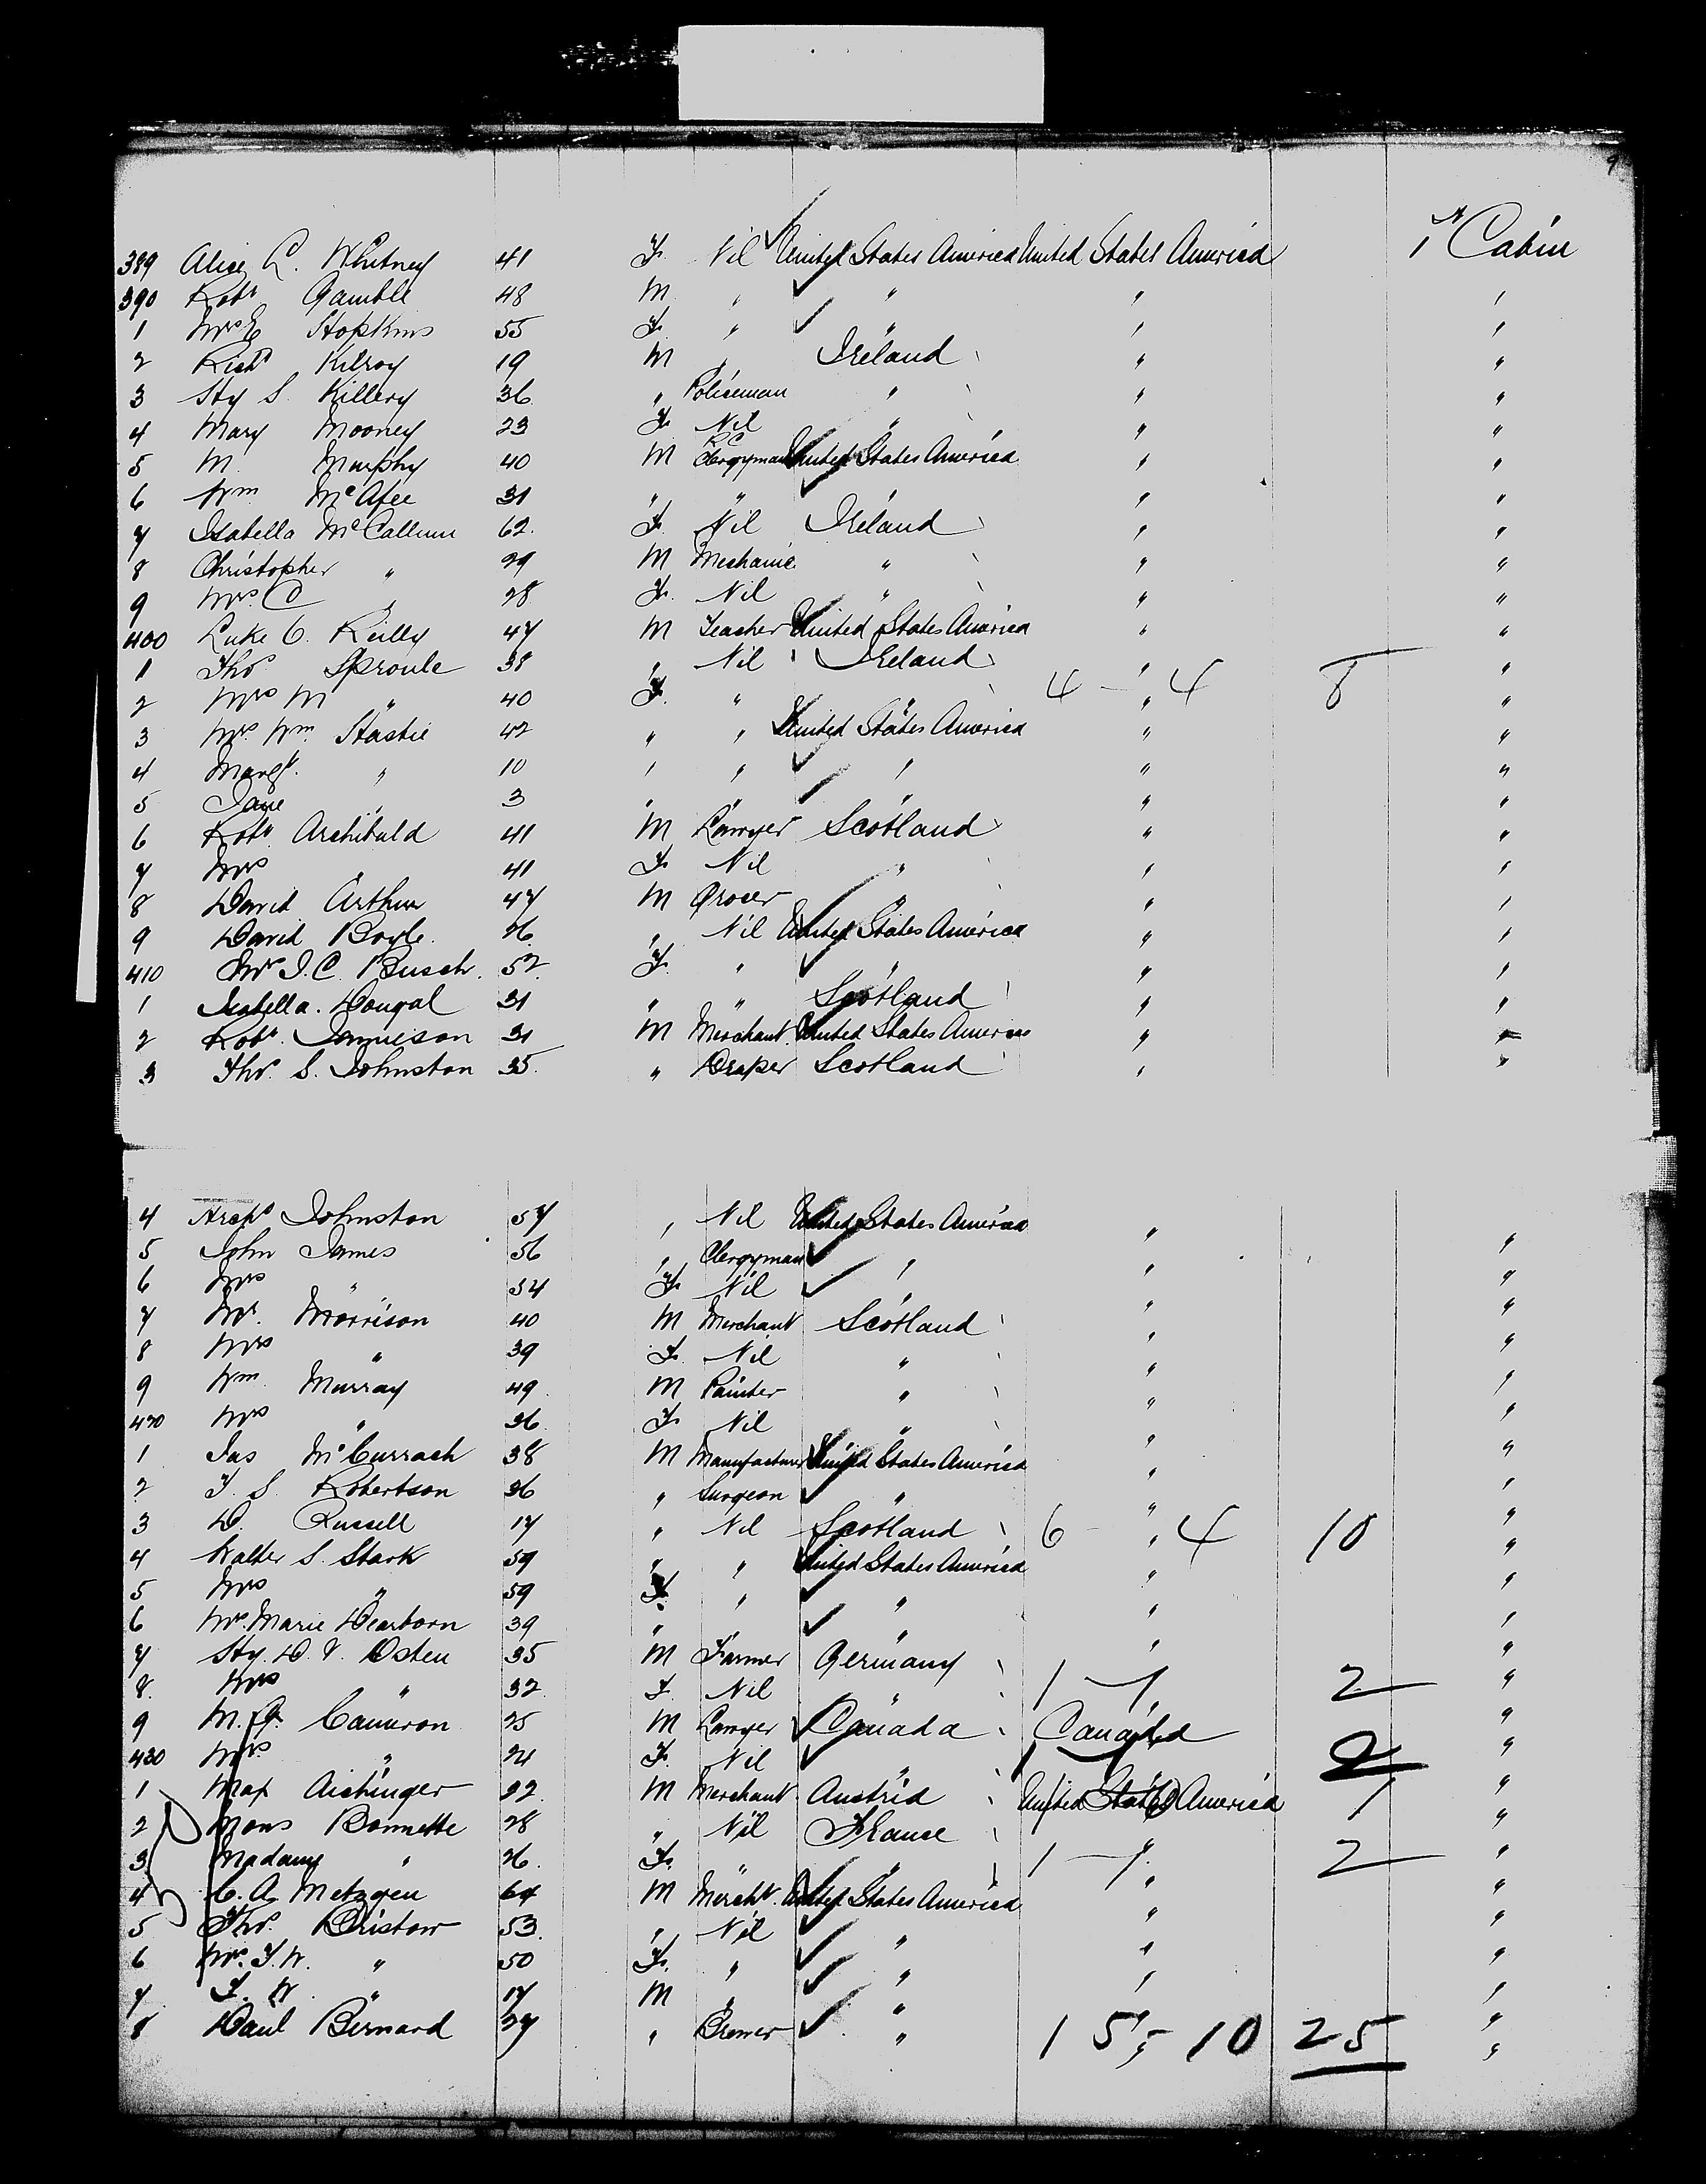 9
389 Alice L. Whitney 41 F. Nil United States America United States America 1st Cabin
390 Robt Gamble 48 M " " " "
1 Mrs E Hopkins 55 F. " " " "
2 Richd Kilroy 19 M " Ireland " "
3 Hy S. Killery 36 " Policeman " " "
4 Mary Mooney 23 F. Nil " " "
5 M. Murphy 40 M RC Clergyman United States America " "
6 Wm McAfee 31 " " " " "
7 Isabella McCallum 62 F. Nil Ireland " "
8 Christopher " 29 M Mechanic " " "
9 Mrs. C " 28 F. Nil " " "
400 Luke C. Reilly 47 M Teacher United States America " "
1 Thos Sproule 38 " Nil Ireland " "
2 Mrs M " 40 F. " " 4 - " 4 8 "
3 Mrs. Wm. Hastie 42 " " United States America " "
4 Margt. " 10 " " " " "
5 Jane " 3 " " " " "
6 Robt Archibald 41 M Lawyer Scotland " "
7 Mrs " 41 F. Nil " " "
8 David Arthur 47 M Grocer " " "
9 David Boyle 26 " Nil United States America " "
410 Mrs J. C. Busch. 52 F. " " " "
1 Isabella. Dougal 31 " " Scotland " "
2 Robt. Jamieson 31 M Merchant United States America " "
3 Thos. S. Johnston 35. " Draper Scotland " "
4 Archd Johnston 57 " Nil United States America "
5 John James 56 " Clergyman " " "
6 Mrs " 54 F. Nil " " "
7 Mr. Morrison 40 M Merchant Scotland " "
8 Mrs " 39 F. Nil " " "
9 Wm Murray 49 M Painter " " "
420 Mrs " 36 F. Nil " " "
1 Jas McCurrach 38 M Manufacturer United States America " "
2 T. S. Robertson 36 " Surgeon " " "
3 D. Russell 17 " Nil Scotland 6 - " 4 10 "
4 Walter S. Stark 59 " " United States America " "
5 Mrs " 59 F. " " " "
6 Mrs. Marie Dearborn 39 " " " " "
7 Hy. D. V. Osten 35 M Farmer Germany " "
8. Mrs " 32 F. Nil " 1 - 1 2 "
9 M. G. Cameron 25 M Lawyer Canada Canada "
430 Mrs " 24 F. Nil " " 2 "
1 Max Aichinger 22 M Merchant Austria United States America 1 "
2 Mons Bonnette 28 " Nil France " "
3 Madame " 26. F. " " 1 - 1 2 "
4 C. A. Metzgen 64 M Mercht. United States America " "
5 Thos. Bristow 53. " Nil " " "
6 Mrs. T. W. " 50 F. " " " "
7 T. W. " 17 M " " " "
8 Paul Bernard 37 " Brewer " 15 - 10 25 "